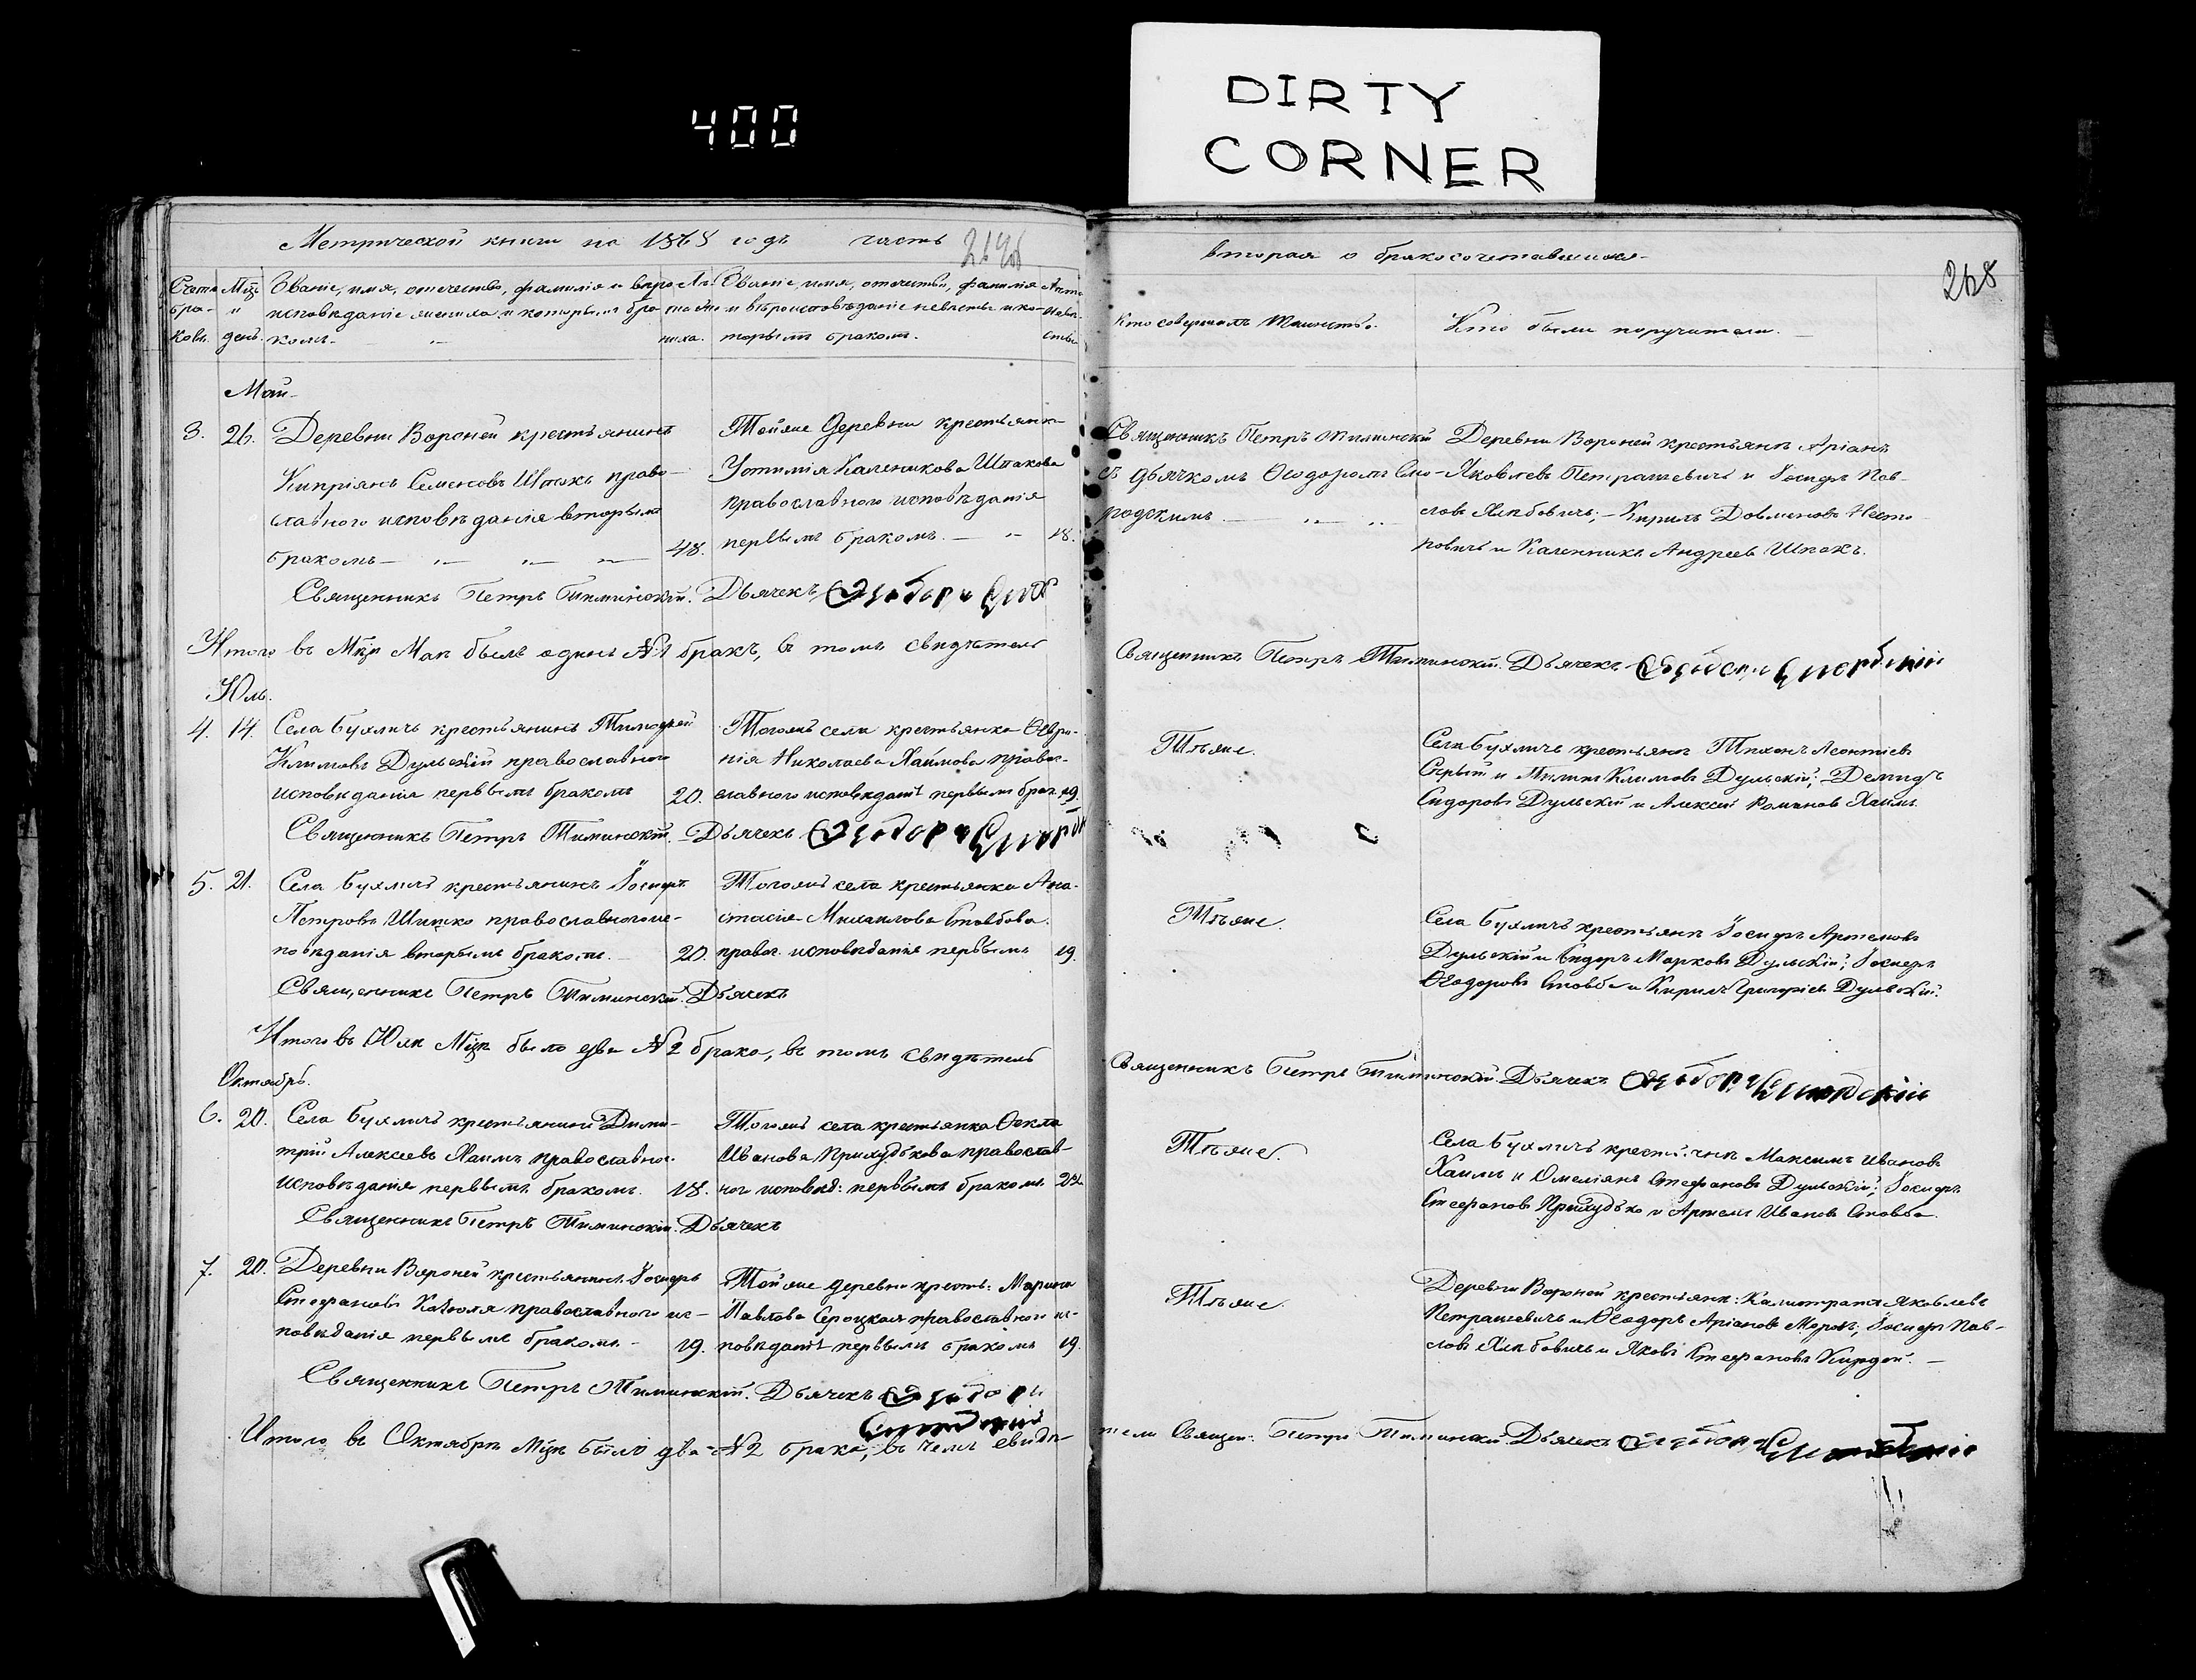 DIRTY
CORNER
400
Метрической книги на 186 годъ часть
вторая о бракосочетавшихся
268
Счетъ бра- ковъ.
Мцъ и день.
Званіе, имя, отечество, фамилія и вѣро-
исповѣданіе жениха и которымъ бра-
комъ.
Званіе, имя, отчество, фамилія
и вѣроисповѣданіе невѣсты и ко-
торымъ бракомъ.
Кто совершалъ Таинство.
Кто были поручители.
Май
3. 26.
Деревни Вороней крестьянинъ
Кипріянъ Семеновъ Шпакъ право-
славного исповѣданія вторымъ
бракомъ 48.
Тойже деревни крестьянка
Устимія Каленикова Шпакова
православного исповѣданія
первымъ бракомъ. 18.
Священникъ Петръ Тиминскій
съ дьячкомъ Ѳеодоромъ Смо-
родскимъ
Деревни Вороней крестьяне Аріанъ
Яковлевъ Петрашевичъ и Іосифъ Пав-
ловъ Хлѣбовичъ; Кирилъ Довменовъ Несте-
ровичъ и Каленникъ Андреевъ Шпакъ.
Священникъ Петръ Тиминскій. Дьячекъ Ѳеодоръ
Итого въ Мцѣ Маѣ былъ одинъ №1 бракъ, в томъ свидѣтель
Священникъ Петръ Тиминскій. Дьячекъ Ѳеодоръ Смородскій
Юль.
4. 14.
Села Бухличъ крестьянинъ Тимофей
Климовъ Дульскій православного
исповѣданія первымъ бракомъ 20.
Тогожъ села крестьянка Февро-
нія Николаева Хаимова право-
славного исповѣданія первымъ брак. 19.
Тѣже.
Села Бухличъ крестьяне Тихонъ Леонтіевъ
Сѣрый и Климовъ Дульскій; Демидъ
Сидоровъ Дульскій и Алексій Романовъ Хаимъ.
Священникъ Петръ Тиминскій. Дьячекъ Ѳеодоръ
5. 21.
Села Бухличъ крестьянинъ Іосифъ
Петровъ Шишко православного ис-
повѣданія вторымъ бракомъ. 20.
Тогожъ села крестьянка Ана-
стасія Михаилова Стовбова
правос. исповѣданія первымъ 19.
Тѣже.
Села Бухличъ крестьяне Іосифъ Артемовъ
Дульскій и Сидоръ Марковъ Дульскій; Іосифъ
Ѳеодоровъ Стовба и Кирилъ Григоріевъ Дульскій.
Священникъ Петръ Тиминскій. Дьячекъ
Итого въ Юлѣ Мцѣ было два №2 брака, въ томъ свидѣтель
Священникъ Петръ Тиминскій. Дьячекъ Ѳеодоръ Смородскій
Октябрь.
6. 20.
Села Бухличъ крестьянинъ Дими-
трій Алексеевъ Хаимъ православног.
исповѣданія первымъ бракомъ. 18.
Тогожъ села крестьянка Ѳекла
Иванова Приходькова православ-
ног исповѣд: первымъ бракомъ
Тѣже.
Села Бухличъ Максимъ Ивановъ
Хаимъ и Омеліянъ Стефановъ Дульскій; Іосифъ
Стефановъ Приходько и Артемъ Ивановъ Стовба.
Священникъ Петръ Тиминскій. Дьячекъ
7. 20.
Деревни Вороней крестьянинъ Іосифъ
Стефановъ православного ис-
повѣданія первымъ бракомъ. 19.
Тойже деревни кресть: Марина
Павлова Сероцкая православног ис-
повѣданія первымъ бракомъ 19.
Тѣже.
Деревни Вороней крестьяне: Калистратъ Яковлевъ
Петрашевичъ и Ѳеодоръ Аріановъ Іосифъ Пав-
ловъ Хлѣбовичъ и Яковъ Стефановъ
Священникъ Петръ Тиминскій. Дьячекъ Ѳеодоръ
Смородскій
Итого въ Октябрѣ Мцѣ было два №2 брака, въ чемъ свидѣ-
тели Священ: Петръ Тиминскій Дьячекъ Ѳеодоръ Смородскій